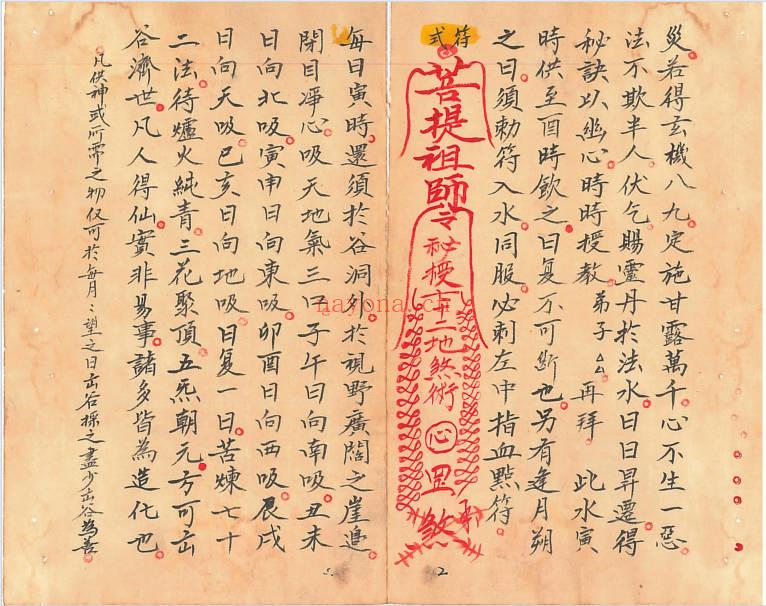 災若得玄機八九定施甘露萬千心不生一惡
法不欺半人伏乞賜靈丹於法水日日昇遷得
秘訣以幽心時時授教 弟子△△ 再拜 此水寅
時供至酉時飲之日复不可斷也另有逢月朔
之日須勅符入水同服必刺左中指血點符
符式
菩提祖師令
秘授
地煞術
心
罡煞
2
每日寅時還須於谷洞外於視野廣闊之崖邊
閉目凈心吸天地氣三口子午日向南吸丑未
日向北吸寅申日向東吸卯酉日向西吸辰戌
日向天吸巳亥日向地吸日复一日苦煉七十
二法待爐火純青三花聚頂五炁朝元方可出
谷濟世凡人得仙實非易事諸多皆為造化也
凡供神或所需之物仅可於每月望之日出谷採之盡少出谷為善
nayona.cn